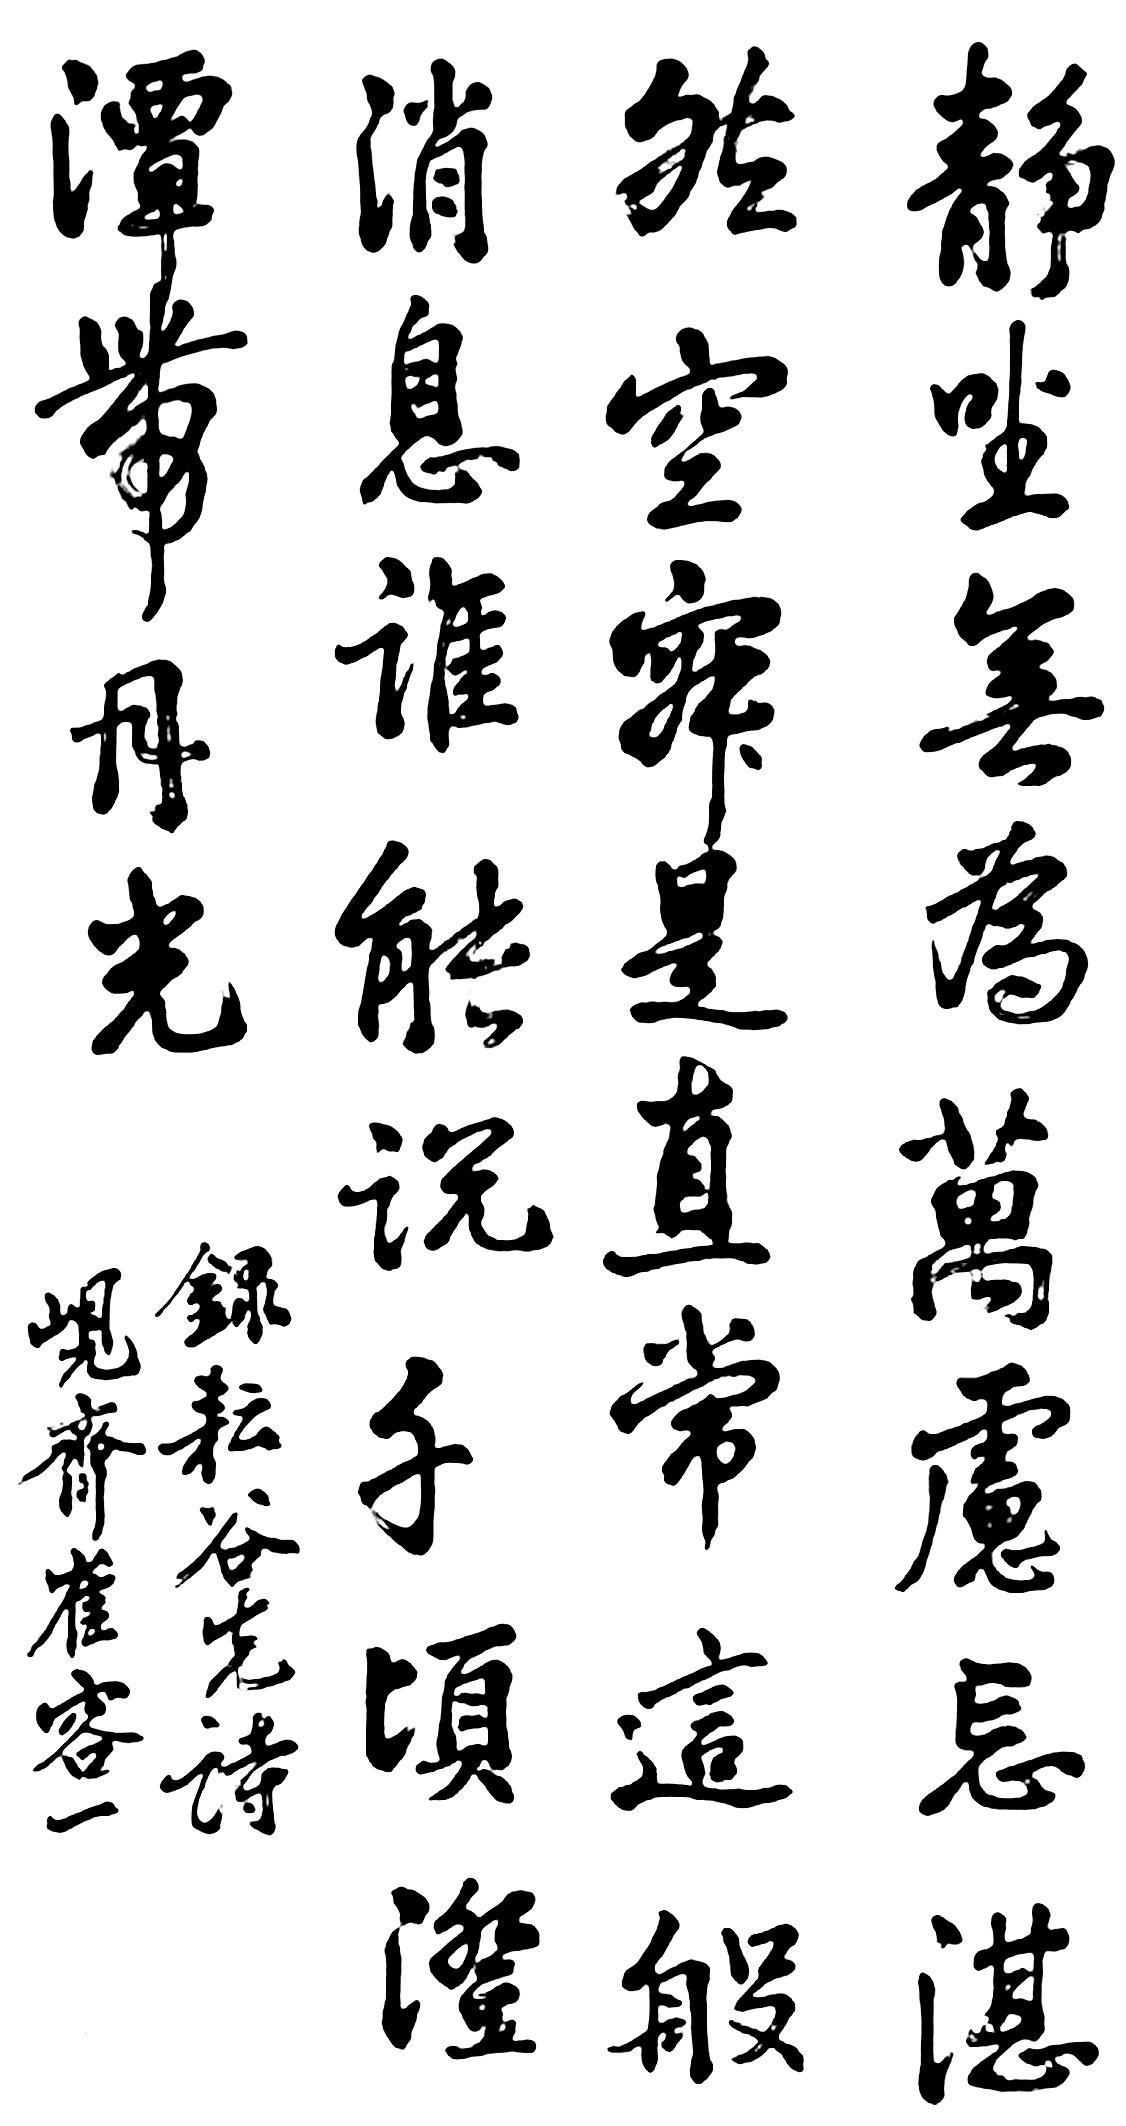 静坐無為萬慮忘湛
然空寂是直常這般
消息誰能說千頃澄
潭帶月光
録耘谷先詩
峴齊崔容一